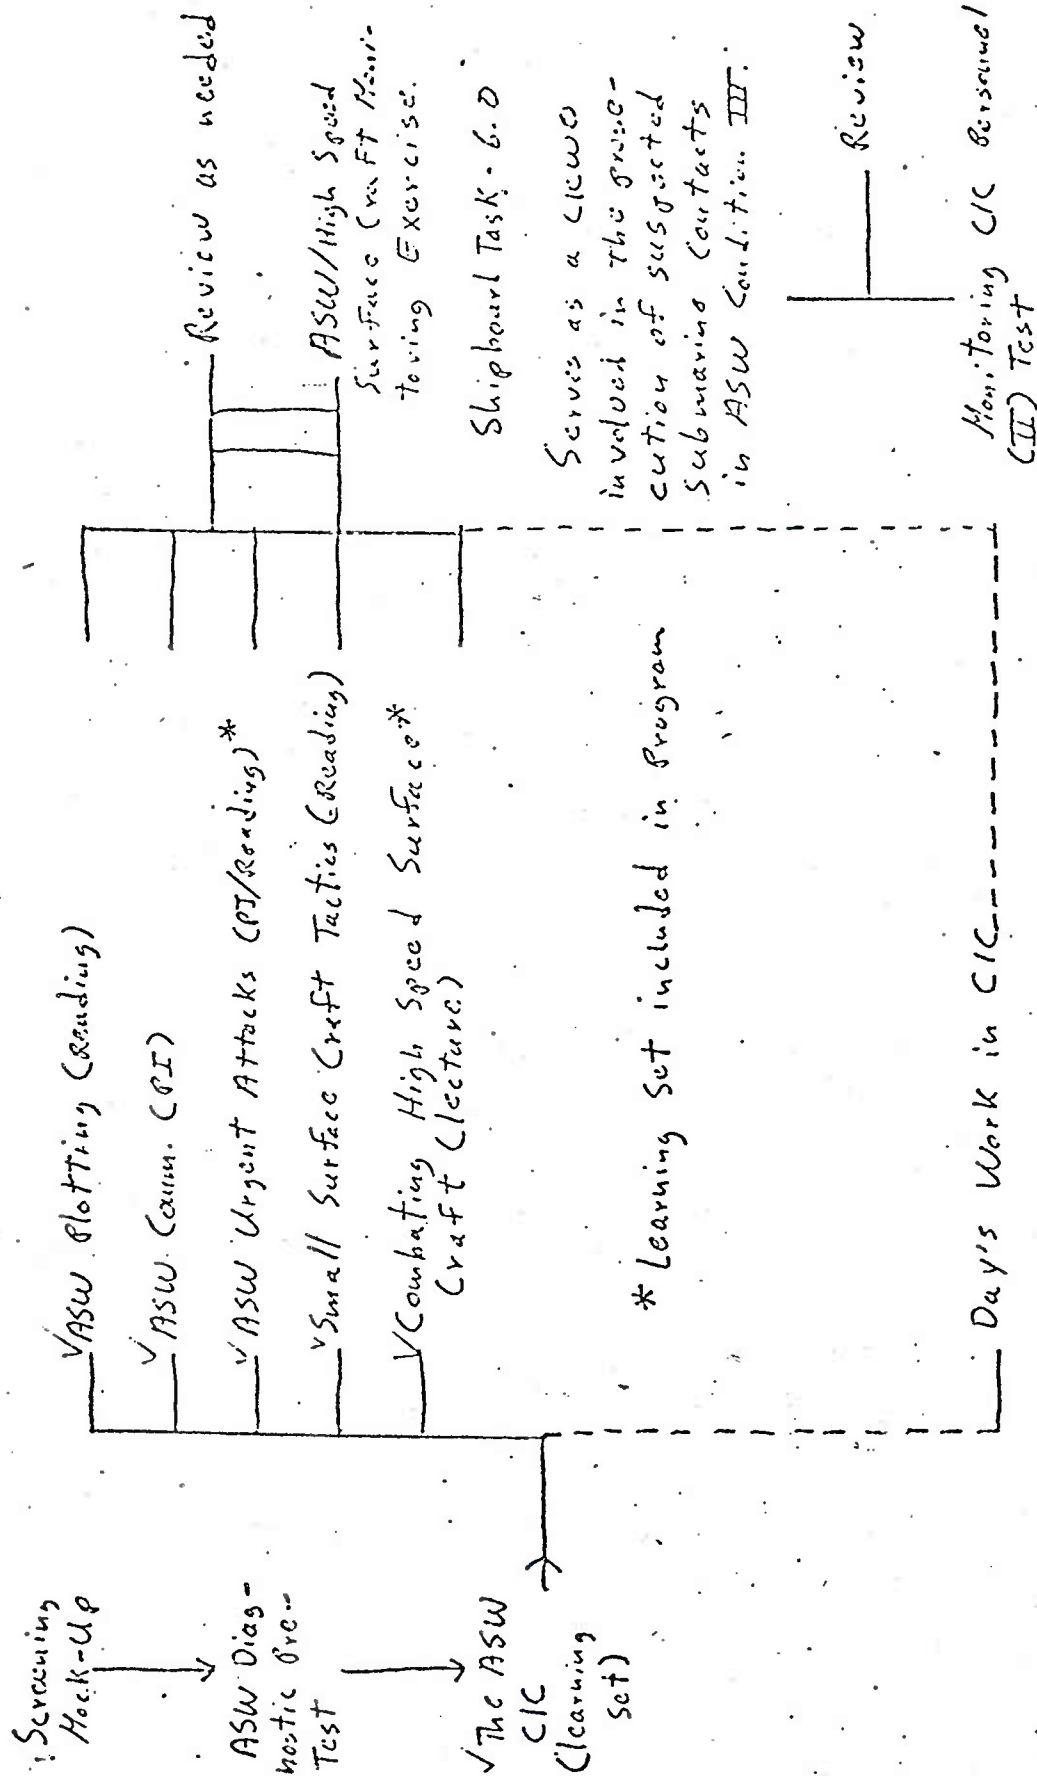 Screening
Mock-Up
ASW Diag-
nostic Pre-
Test
✓The ASW
CIC
(learning
set)
✓ASW Plotting (Reading)
✓ASW Comm. (PI)
✓ASW Urgent Attacks (PI/Reading)*
✓Small Surface Craft Tactics (Reading)
✓Combating High Speed Surface*
Craft (lecture)
* Learning Set included in Program
Day's Work in CIC
Review as needed
ASW/High Speed
Surface Craft Moni-
toring Exercise.
Shipboard Task - 6.0
Serves as a CICWO
involved in the prose-
cution of suspected
submarine contacts
in ASW Condition III.
Review
Monitoring CIC Personnel
(III) Test